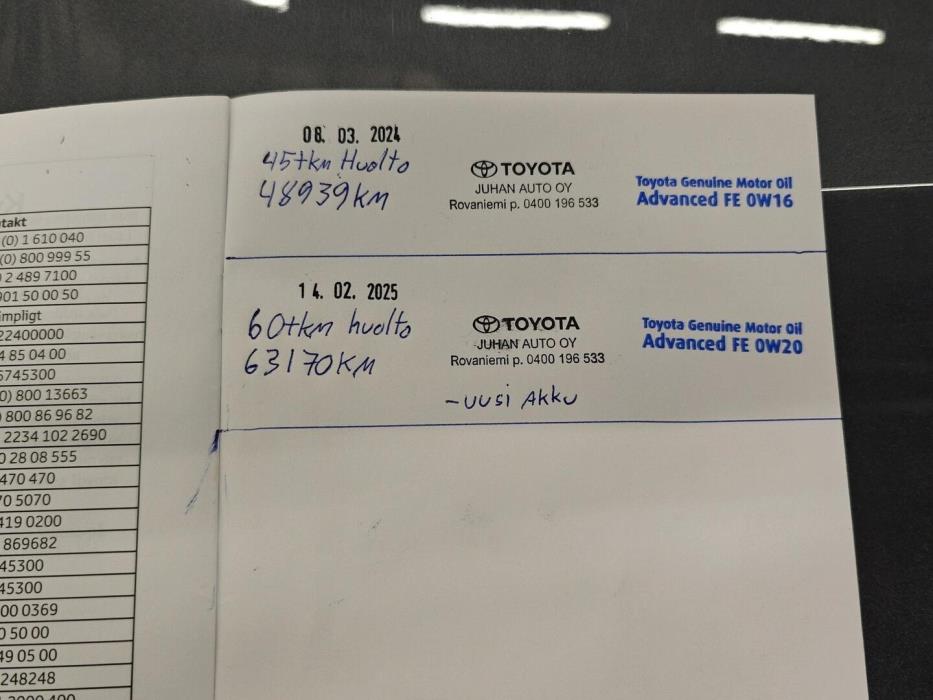 takt
(0) 1 610 040
(0) 800 999 55
2 489 7100
901 50 00 50
impligt
22400000
4 85 04 00
6745300
0) 800 13663
800 86 96 82
2234 102 2690
0 28 08 555
470 470
70 5070
419 0200
869682
45300
45300
00 0369
0 50 00
49 05 00
248248
08. 03. 2024
45tkm Huolto
48939KM
TOYOTA
JUHAN AUTO OY
Rovaniemi p. 0400 196 533
Toyota Genuine Motor Oil
Advanced FE 0W16
14. 02. 2025
60tkm huolto
63170KM
TOYOTA
JUHAN AUTO OY
Rovaniemi p. 0400 196 533
Toyota Genuine Motor Oil
Advanced FE 0W20
-UUSI AKKU